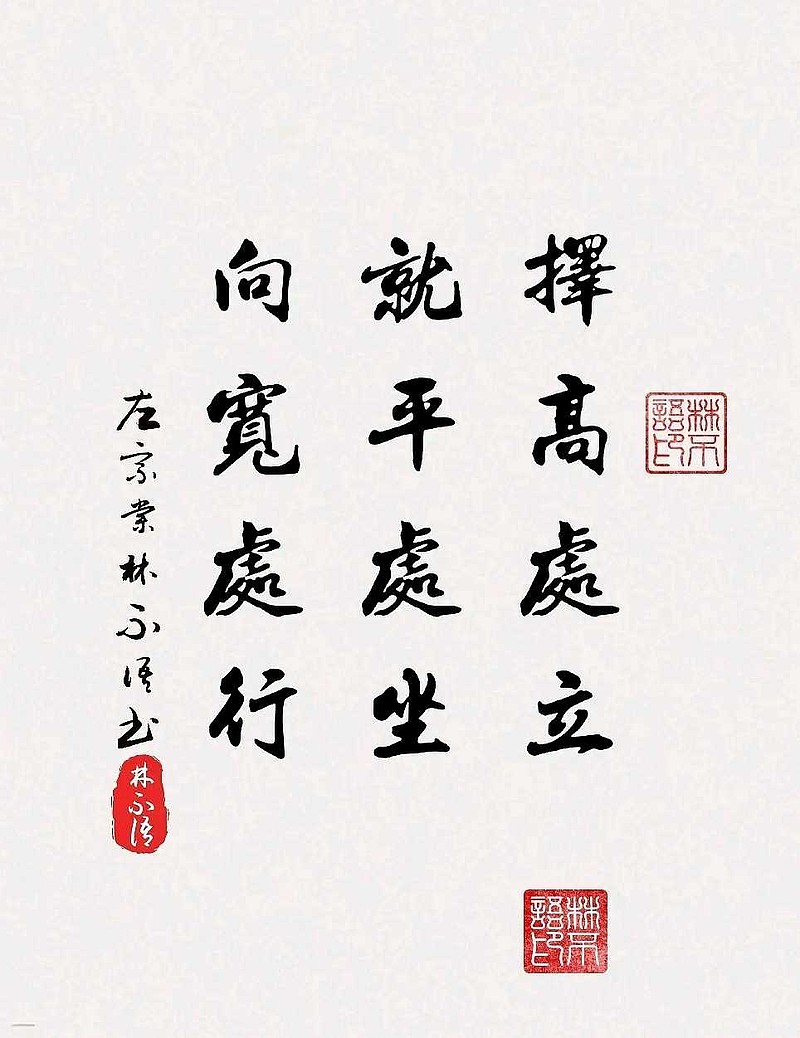 擇高處立
就平處坐
向寬處行
左宗棠林不语书
林不语
林不語印
林不語印